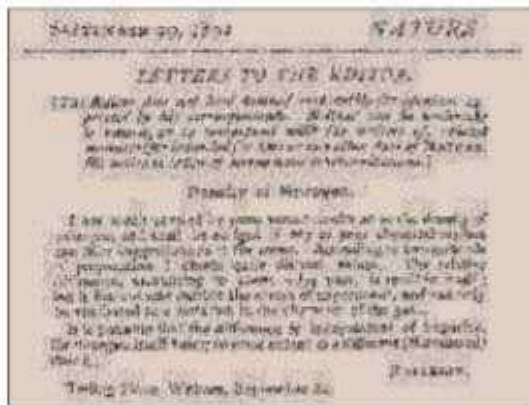 SEPTEMBER 29, 1892 NATURE
LETTERS TO THE EDITOR.
[The Editor does not hold himself responsible for opinions ex-
pressed by his correspondents. Neither can he undertake
to return, or to correspond with the writers of, rejected
manuscripts intended for this or any other part of NATURE.
No notice is taken of anonymous communications.]
Density of Nitrogen.
I am much puzzled by some results as to the density of
nitrogen, and shall be obliged if any of your chemical readers
can offer suggestions as to the cause. According to two methods
of preparation I obtain quite distinct values. The relative
difference, amounting to about part, is small in itself;
but it lies entirely outside the errors of experiment, and can only
be attributed to a variation in the character of the gas.
It is possible that the difference is independent of impurity,
the nitrogen itself being to some extent in a different (dissociated)
state.
RAYLEIGH.
Terling Place, Witham, September 24.